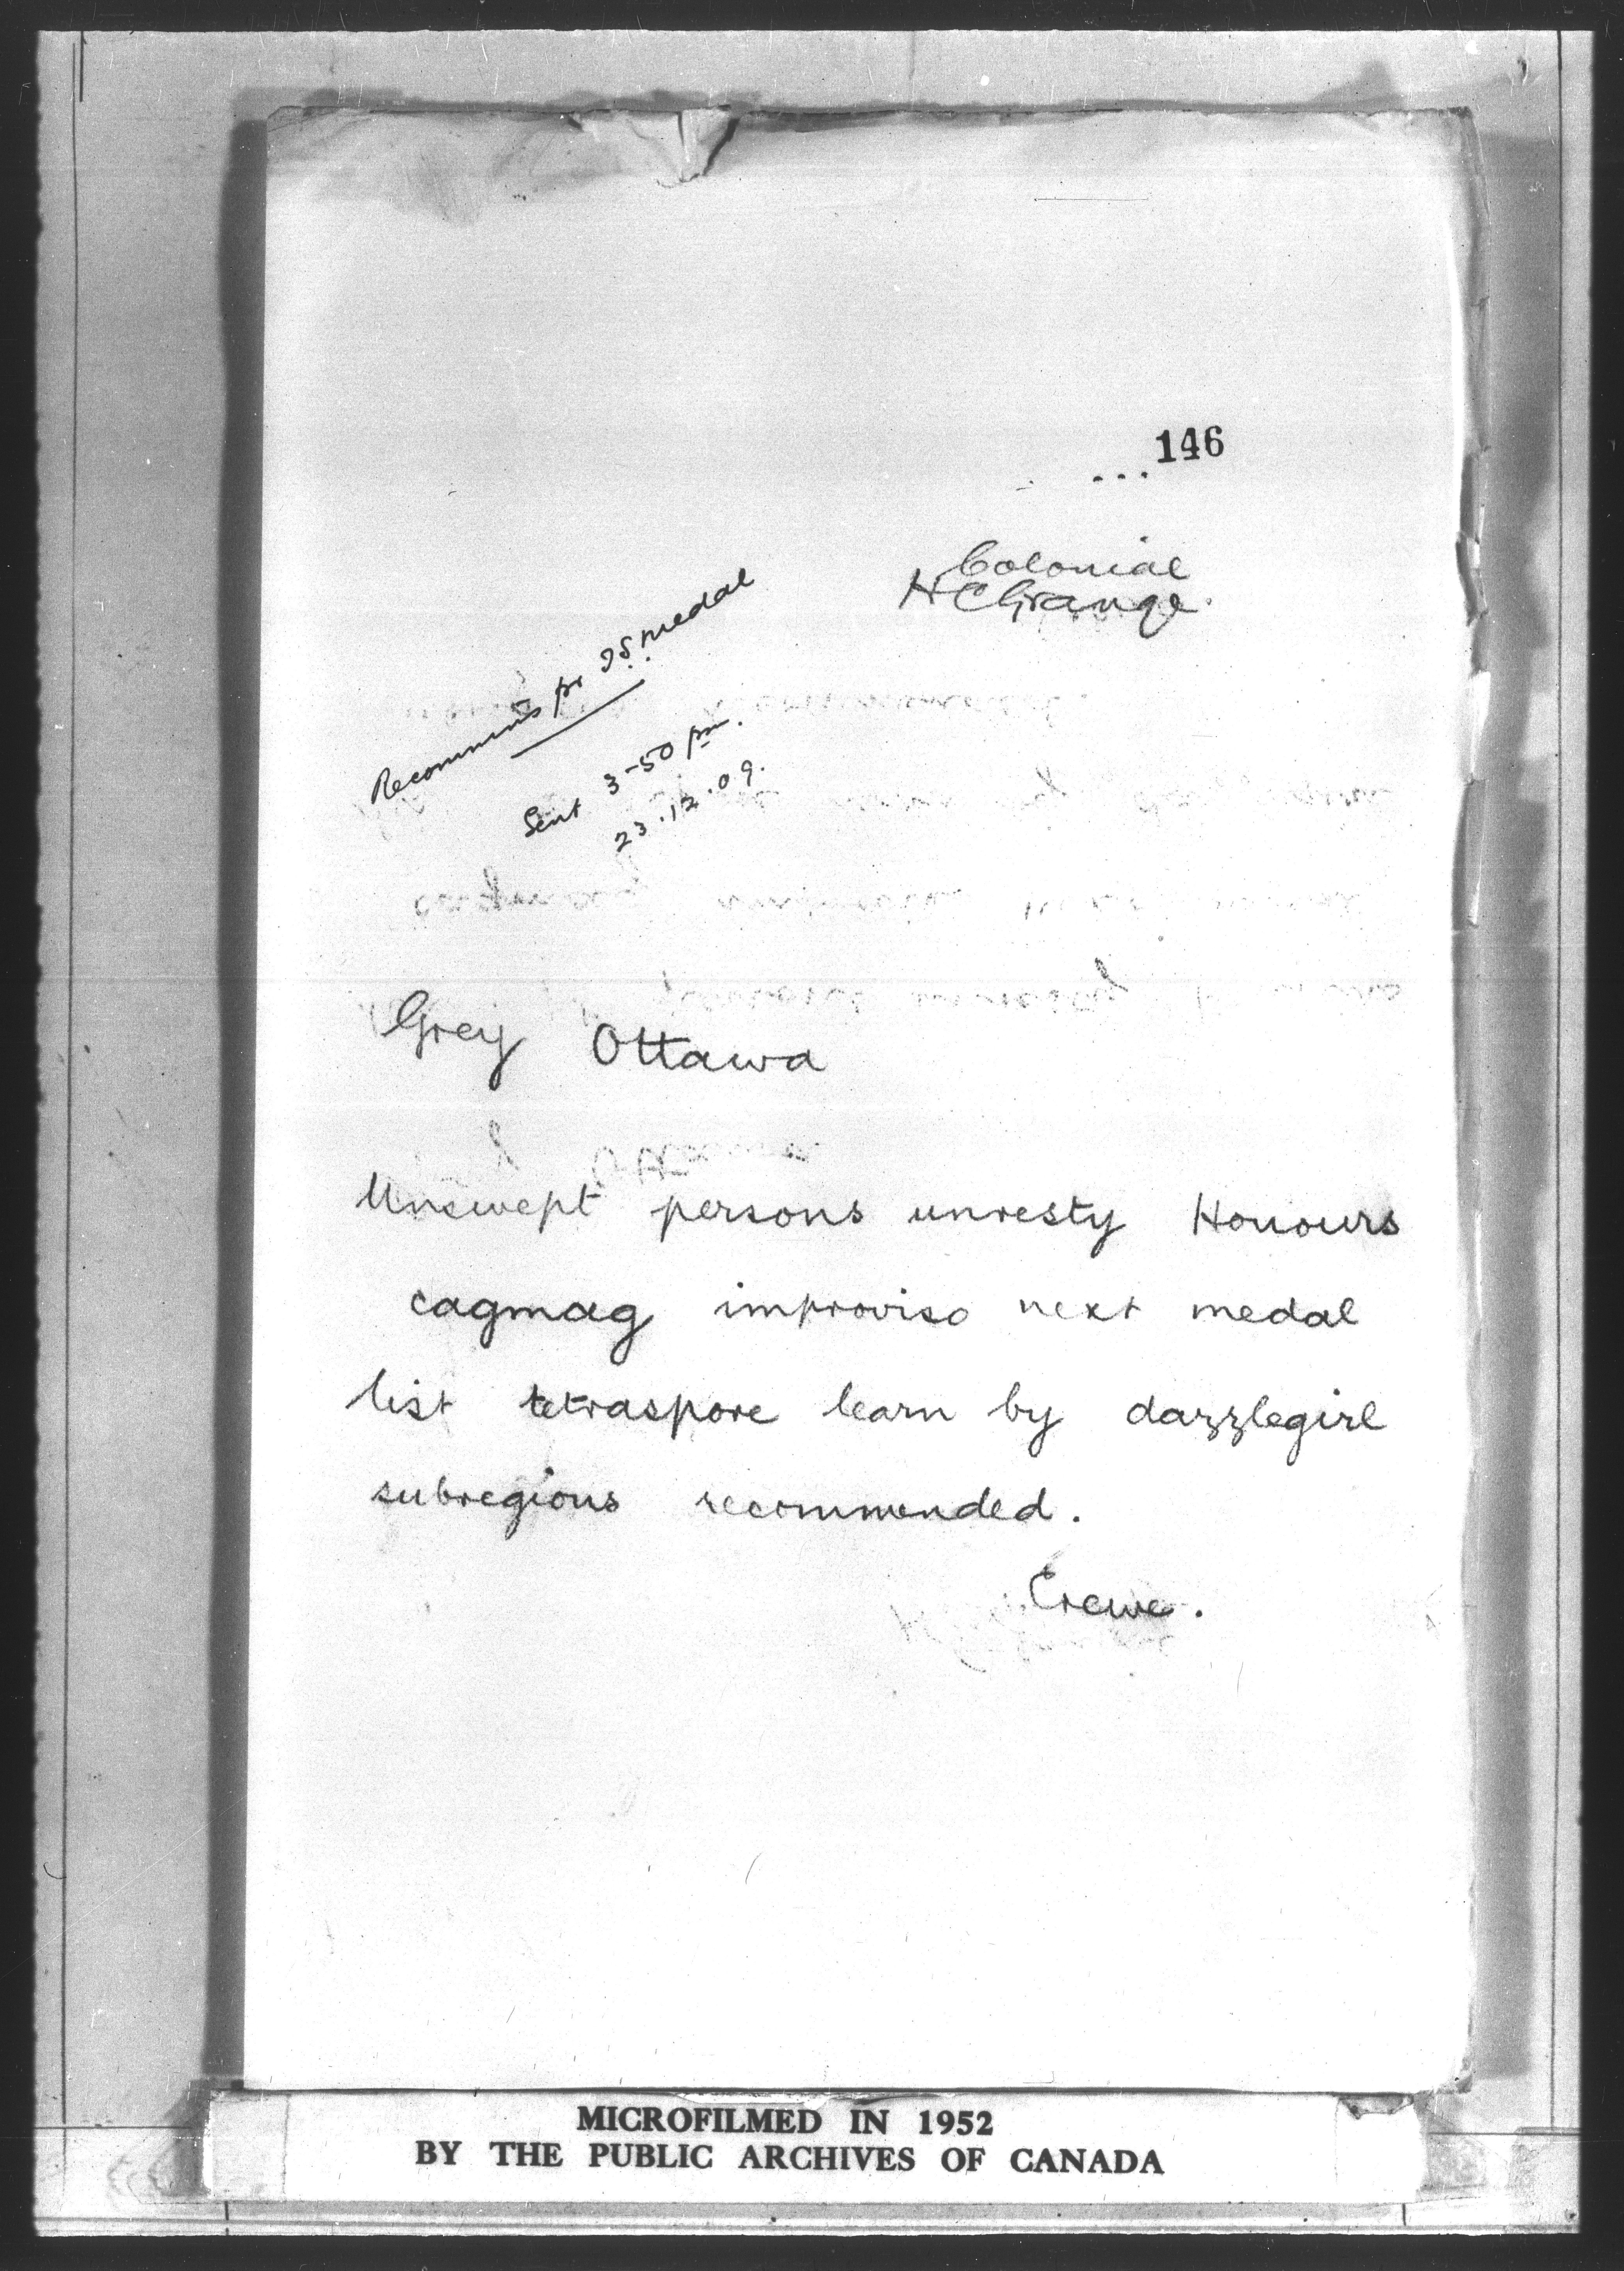 146
Colonial
H C Grange.
Recommns for I.S. medal
Sent 3-50 pm.
23.12.09.
Grey Ottawa
Unswept persons unresty Honours
cagmag improviso next medal
list tetraspore learn by dazzlegirl
subregions recommended.
Crewe.
MICROFILMED IN 1952
BY THE PUBLIC ARCHIVES OF CANADA